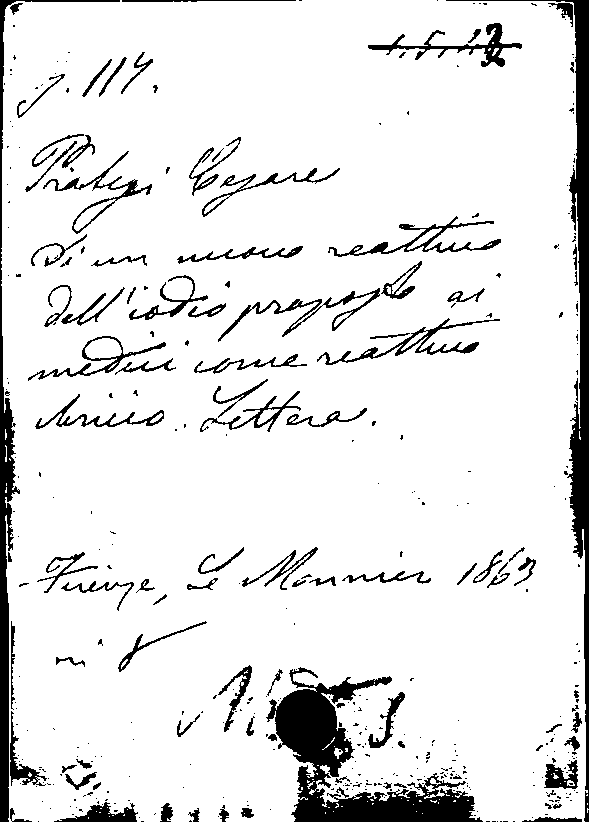 1.5.42
g. 114.
Pratesi Cesare
Di un nuovo reattivo
dell'iodio proposto ai
medici come reattivo
clinico. Lettera.
Firenze, Le Monnier 1863.
in 8